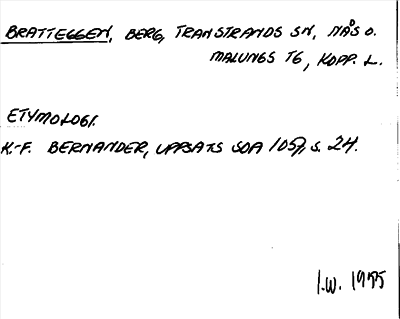 BRATTEGGEN, BERG, TRANSTRANDS SN, NÅS O.
MALUNGS TG, KOPP. L.
ETYMOLOGI.
K.-F. BERNANDER, UPPSATS SOA 1057, S. 24.
I.W. 1975